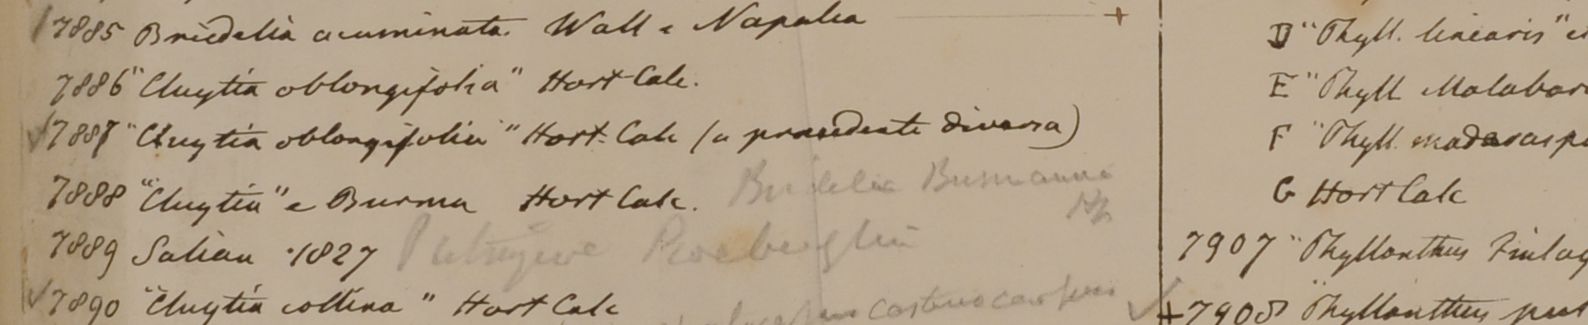 7885 Briedelia acuminata Wall e Napalia +
7886 "Cluytia oblongifolia" Hort Calc.
7887 "Cluytia oblongifolia" Hort Calc (a praecedente diversa)
7888 "Cluytia" e Burma Hort Calc. Bridelia Burmanica
7889 Salian 1827 Putranjiva Roxburghii
7890 "Cluytia collina" Hort Calc
D "Phyll. linearis"
E "Phyll Malabar
F "Phyll. madarasp
G Hort Calc
7907 "Phyllanthus Finlay
+7908 "Phyllanthus